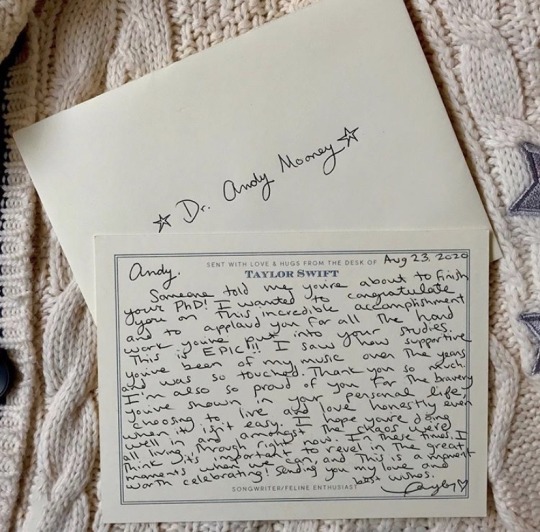 Dr. Andy Mooney
SENT WITH LOVE & HUGS FROM THE DESK OF
Aug 23, 2020
TAYLOR SWIFT
Andy,
Someone told me you're about to finish
your PhD! I wanted to congratulate
you on this incredible accomplishment
and to applaud you for all the hard
work you've put into your studies.
This is EPIC!!! I saw how supportive
you've been of my music over the years
and was so touched. Thank you so much.
I'm also so proud of you for the bravery
you've shown in your personal life,
choosing to live and love honestly even
when it isn't easy. I hope you're doing
well in and amongst the chaos we're
all living through right now. In these times, I
think it's important to revel in the great
moments when we can and this is a moment
worth celebrating! Sending you my love and
best wishes.
SONGWRITER/FELINE ENTHUSIAST
Taylor